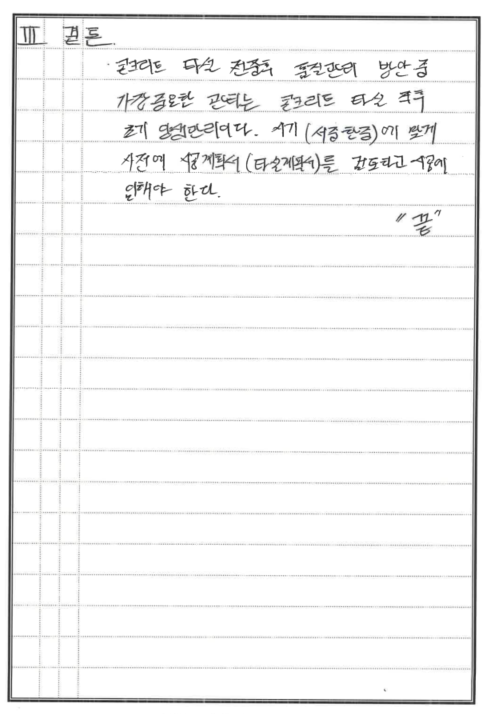 III 결론.
· 콘크리트 타설 전중후 품질관리 방안 중
가장 중요한 관리는 콘크리트 타설 직후
초기 양생관리이다. 시기 (서중한중)에 맞게
사전에 시공계획서 (타설계획서)를 검토하고 시공에
임해야 한다.
"끝"